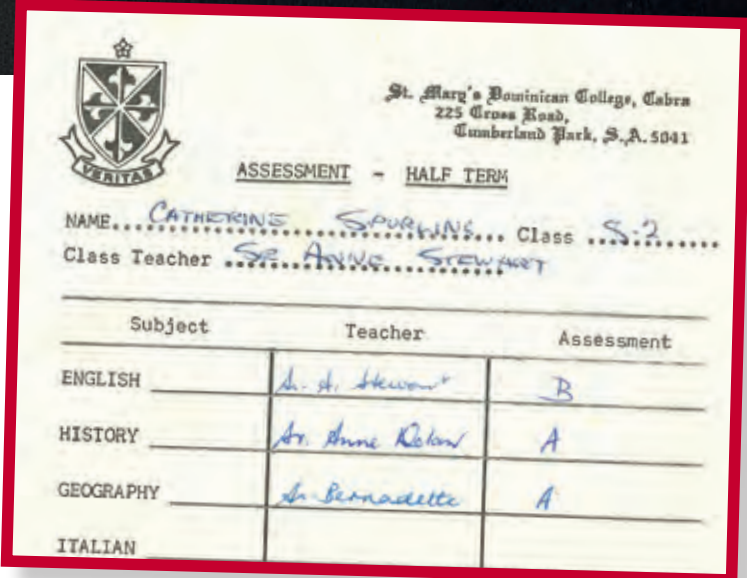 St. Mary's Dominican College, Cabra
225 Cross Road,
Cumberland Park, S.A. 5041
VERITAS
ASSESSMENT - HALF TERM
NAME... CATHERINE ... Class S-2
Class Teacher SR ANNE STEWART
Subject Teacher Assessment
ENGLISH Sr. A. Stewart B
HISTORY Sr. Anne A
GEOGRAPHY Sr Bernadette A
ITALIAN